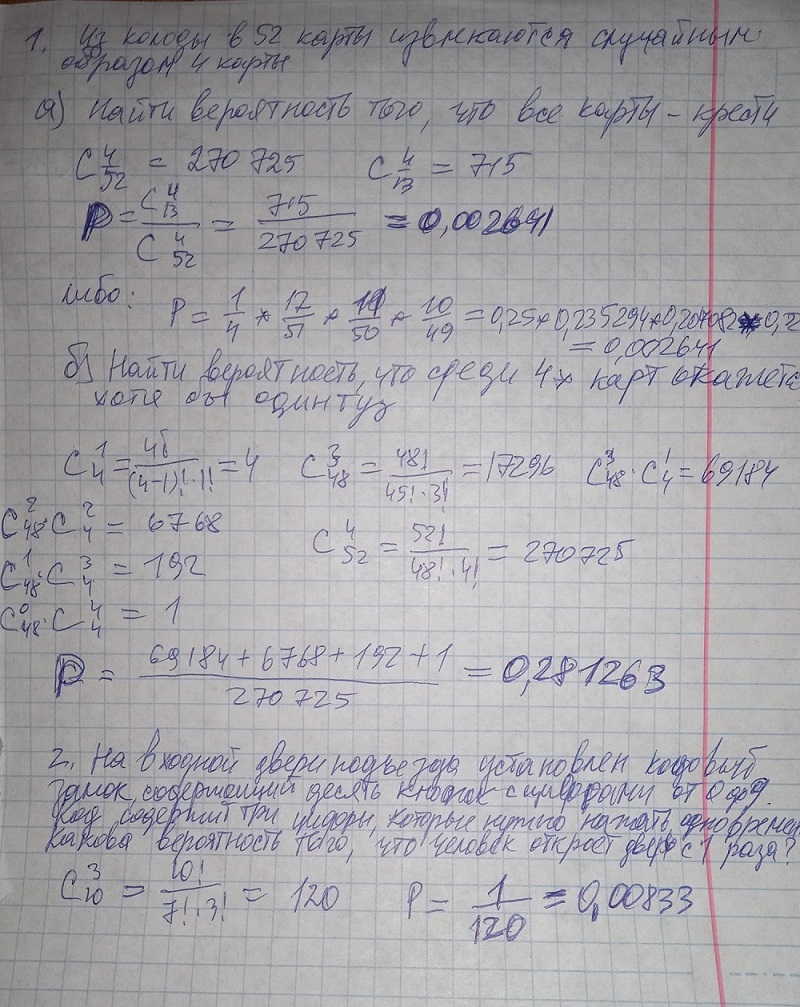 1. Из колоды в 52 карты извлекаются случайным
образом 4 карты
а) Найти вероятность того, что все карты – крести
C⁴₅₂ = 270 725 C⁴₁₃ = 715
P = C⁴₁₃ / C⁴₅₂ = 715 / 270 725 = 0,002641
либо: P = 1/4 * 12/51 * 11/50 * 10/49 = 0,25*0,235294*0,204082*0,22
= 0,002641
б) Найти вероятность, что среди 4х карт окажется
хотя бы один туз
C¹₄ = 4! / (4-1)!·1! = 4 C³₄₈ = 48! / 45!·3! = 17296 C³₄₈·C¹₄ = 69184
C²₄₈·C²₄ = 6768
C⁴₅₂ = 52! / 48!·4! = 270725
C¹₄₈·C³₄ = 192
C⁰₄₈·C⁴₄ = 1
P = 69184 + 6768 + 192 + 1 / 270 725 = 0,281263
2. На входной двери подъезда установлен кодовый
замок, содержащий десять кнопок с цифрами от 0 до 9.
Код содержит три цифры, которые нужно нажать одновремен
Какова вероятность того, что человек откроет дверь с 1 раза?
C³₁₀ = 10! / 7!·3! = 120 P = 1 / 120 = 0,00833